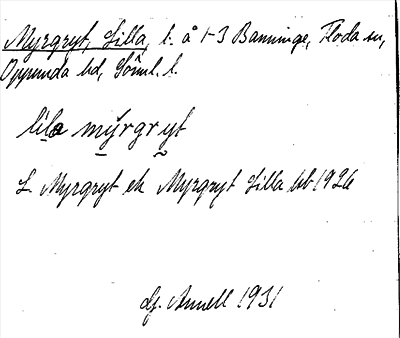 Myrgryt, Lilla, l. å 1-3 Banninge, Floda sn,
Oppunda hd, Söml. l.
lila myrgryt
L. Myrgryt ek Myrgryt Lilla bb 1926
Annell 1931